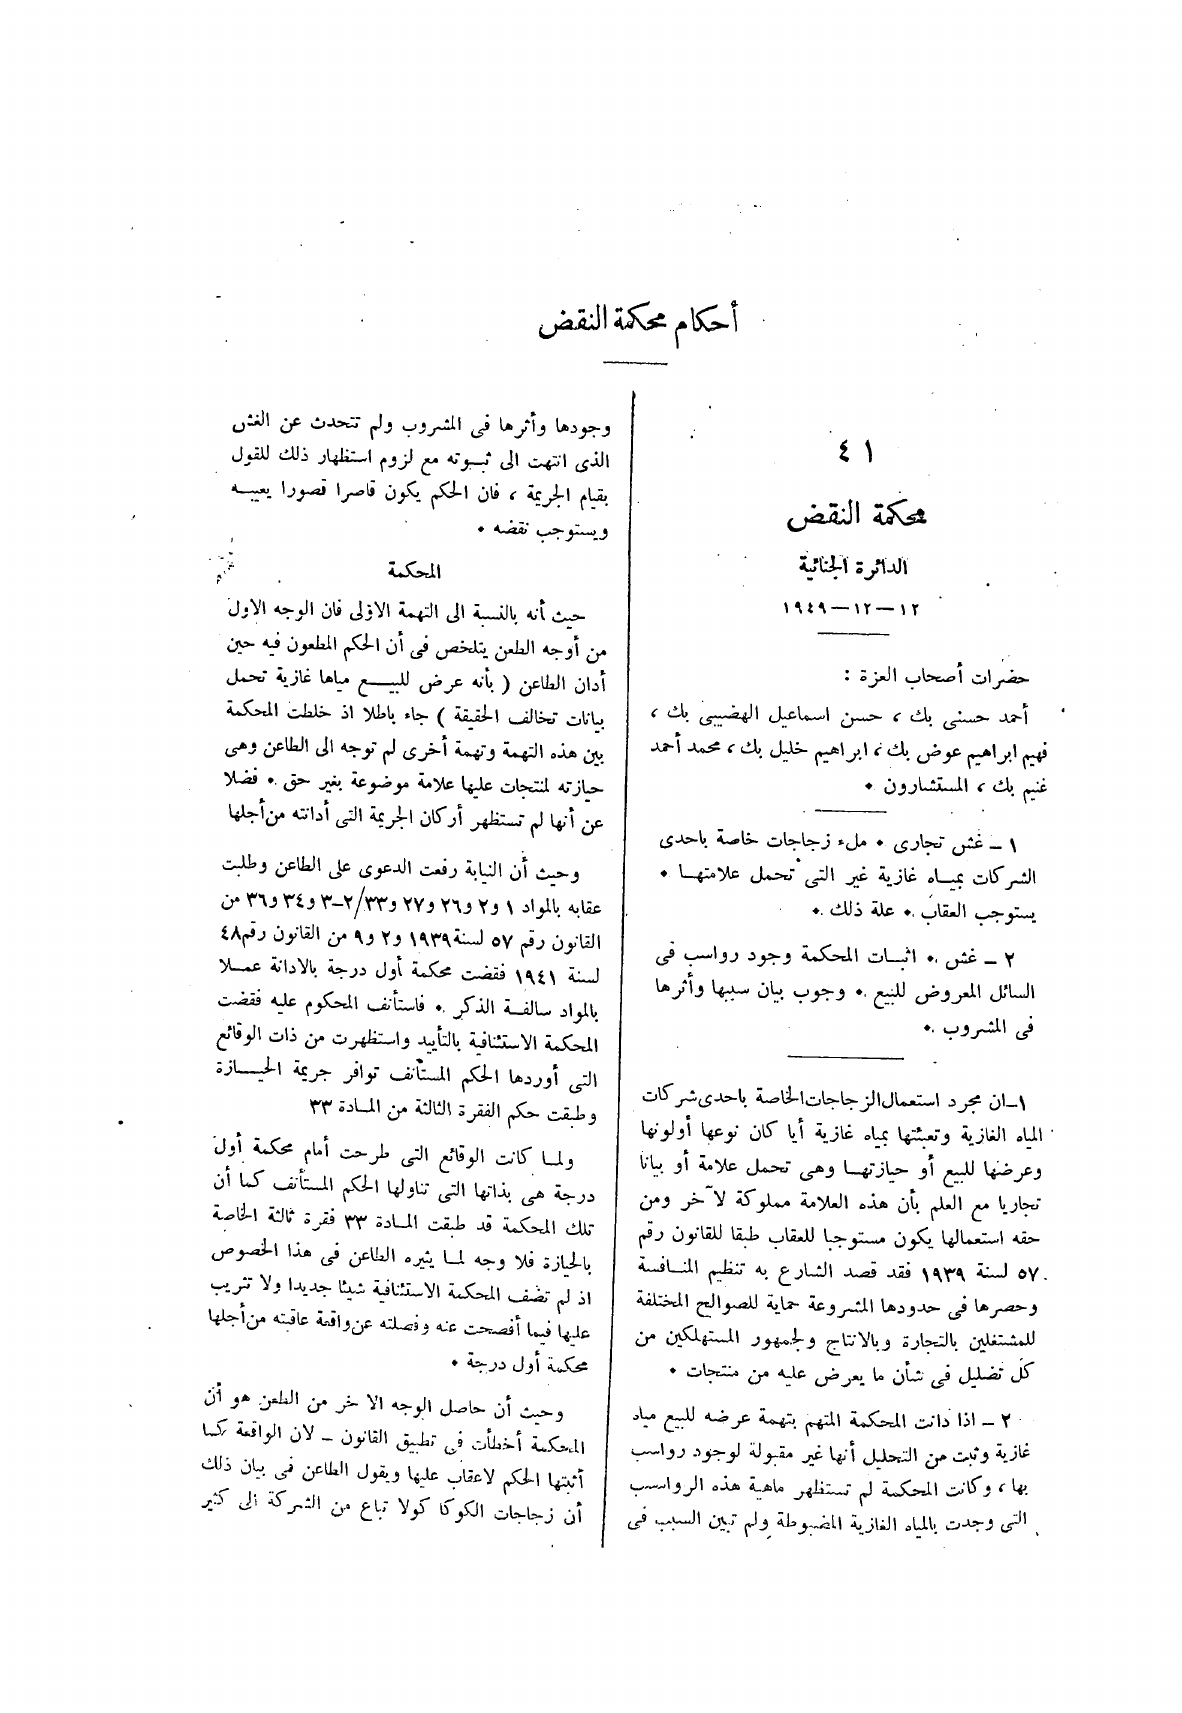 أحكام محكمة النقض
٤١
محكمة النقض
الدائرة الجنائية
١٢ — ١٢ — ١٩٤٩
حضرات أصحاب العزة :
أحمد حسنى بك ، حسن اسماعيل الهضيبى بك ،
فهيم ابراهيم عوض بك ، ابراهيم خليل بك ، محمد أحمد
غنيم بك ، المستشارون ٠
١ – غش تجارى ٠ ملء زجاجات خاصة باحدى
الشركات بميـاه غازية غير التى تحمل علامتهـا ٠
يستوجب العقاب ٠ علة ذلك ٠
٢ – غش ٠ اثبـات المحكمة وجود رواسب فى
السائل المعروض للبيع ٠ وجوب بيان سببها وأثرها
فى المشروب ٠
١–ان مجرد استعمال الزجاجات الخاصة باحدى شركات
المياه الغازية وتعبئتها بمياه غازية أيا كان نوعها أولونها
وعرضها للبيع أو حيازتهـا وهى تحمل علامة أو بيانا
تجاريا مع العلم بأن هذه العلامة مملوكة لآخر ومن
حقه استعمالها يكون مستوجبا للعقاب طبقا للقانون رقم
٥٧ لسنة ١٩٣٩ فقد قصد الشارع به تنظيم المنـافسة
وحصرها فى حدودها المشروعة حماية للصوالح المختلفة
للمشتغلين بالتجارة وبالانتاج ولجمهور المستهلكين من
كل تضليل فى شأن ما يعرض عليه من منتجات ٠
٢ – اذا دانت المحكمة المتهم بتهمة عرضه للبيع مياه
غازية وثبت من التحليل أنها غير مقبولة لوجود رواسب
بها ، وكانت المحكمة لم تستظهر ماهية هذه الرواسب
التى وجدت بالمياه الغازية المضبوطة ولم تبين السبب فى
وجودها وأثرها فى المشروب ولم تتحدث عن الغش
الذى انتهت الى ثبـوته مع لزوم استظهار ذلك للقول
بقيام الجريمة ، فان الحكم يكون قاصرا قصورا يعيبـه
ويستوجب نقضه ٠
المحكمة
حيث أنه بالنسبة الى التهمة الاولى فان الوجه الاول
من أوجه الطعن يتلخص فى أن الحكم المطعون فيه حين
أدان الطاعن ( بأنه عرض للبيـع مياها غازية تحمل
بيانات تخالف الحقيقة ) جاء باطلا اذ خلطت المحكمة
بين هذه التهمة وتهمة أخرى لم توجه الى الطاعن وهى
حيازته لمنتجات عليها علامة موضوعة بغير حق ٠ فضلا
عن أنها لم تستظهر أركان الجريمة التى أدانته من أجلها
وحيث أن النيابة رفعت الدعوى على الطاعن وطلبت
عقابه بالمواد ١ و٢ و٢٦ و٢٧ و٣٣/٢–٣ و٣٤ و٣٦ من
القانون رقم ٥٧ لسنة ١٩٣٩ و٢ و٩ من القانون رقم ٤٨
لسنة ١٩٤١ فقضت محكمة أول درجة بالادانة عمـلا
بالمواد سالفـة الذكر ٠ فاستأنف المحكوم عليه فقضت
المحكمة الاستئنافية بالتأييد واستظهرت من ذات الوقائع
التى أوردها الحكم المستأنف توافر جريمة الحيـازة
وطبقت حكم الفقرة الثالثة من المـادة ٣٣
ولمـا كانت الوقائع التى طرحت أمام محكمة أول
درجة هى بذاتها التى تناولها الحكم المستأنف كما أن
تلك المحكمة قد طبقت المـادة ٣٣ فقرة ثالثة الخاصة
بالحيازة فلا وجه لمـا يثيره الطاعن فى هذا الخصوص
اذ لم تضف المحكمة الاستئنافية شيئا جديدا ولا تثريب
عليها فيما أفصحت عنه وفصلته عن واقعة عاقبته من أجلها
محكمة أول درجة ٠
وحيث أن حاصل الوجه الآخر من الطعن هو أن
المحكمة أخطأت فى تطبيق القانون – لان الواقعة كمـا
أثبتها الحكم لاعقاب عليها ويقول الطاعن فى بيان ذلك
أن زجاجات الكوكا كولا تباع من الشركة الى كثير